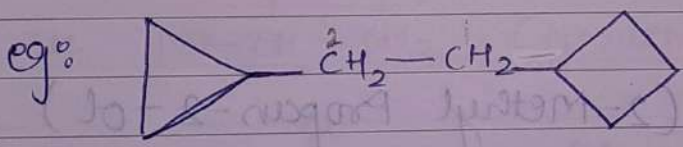 eg:
2 1
CH₂ — CH₂